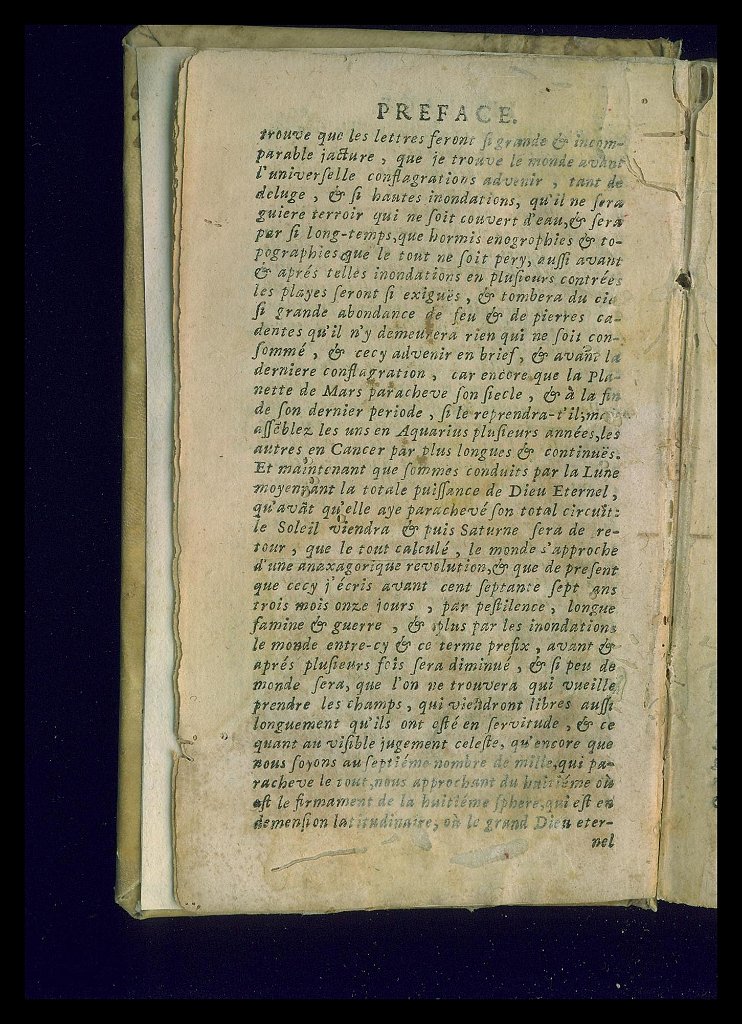 PREFACE.
trouve que les lettres feront ſi grande & incom-
parable jacture, que je trouve le monde avant
l'univerſelle conflagrations advenir, tant de
deluge, & ſi hautes inondations, qu'il ne ſera
guiere terroir qui ne ſoit couvert d'eau,& ſera
par ſi long-temps,que hormis enogrophies & to-
pographies que le tout ne ſoit pery, auſſi avant
& aprés telles inondations en pluſieurs contrées
les playes ſeront ſi exiguës, & tombera du cie
ſi grande abondance de feu & de pierres ca-
dentes qu'il n'y demeurera rien qui ne ſoit con-
ſommé, & cecy advenir en brief, & avant la
derniere conflagration, car encore que la Pla-
nette de Mars paracheve ſon ſiecle, & à la fin
de ſon dernier periode, ſi le reprendra-t'il;
aſſēblez les uns en Aquarius pluſieurs années,les
autres en Cancer par plus longues & continuës.
Et maintenant que ſommes conduits par la Lune
moyennant la totale puiſſance de Dieu Eternel,
qu'avāt qu'elle aye parachevé ſon total circuit:
le Soleil viendra & puis Saturne ſera de re-
tour, que le tout calculé, le monde s'approche
d'une anaxagorique revolution,& que de preſent
que cecy j'écris avant cent ſeptante ſept ans
trois mois onze jours, par peſtilence, longue
famine & guerre, & plus par les inondations
le monde entre-cy & ce terme prefix, avant &
aprés pluſieurs fois ſera diminué, & ſi peu de
monde ſera, que l'on ne trouvera qui vueille
prendre les champs, qui viendront libres auſſi
longuement qu'ils ont eſté en ſervitude, & ce
quant au viſible jugement celeſte, qu'encore que
nous ſoyons au ſeptiéme nombre de mille,qui pa-
racheve le tout,nous approchant du huitiéme où
eſt le firmament de la huitiéme ſphere,qui eſt en
demenſion latitudinaire, où le grand Dieu eter-
nel